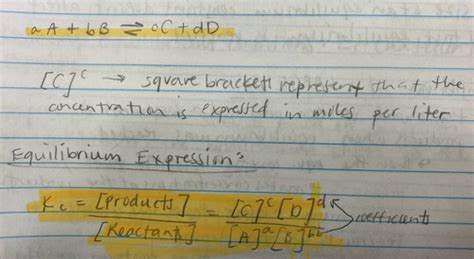 aA + bB ⇌ cC + dD
[C]ᶜ → square brackets represent that the
concentration is expressed in moles per liter
Equilibrium Expression:
Kc = [Products] / [Reactants] = [C]ᶜ [D]ᵈ / [A]ᵃ [B]ᵇ coefficients